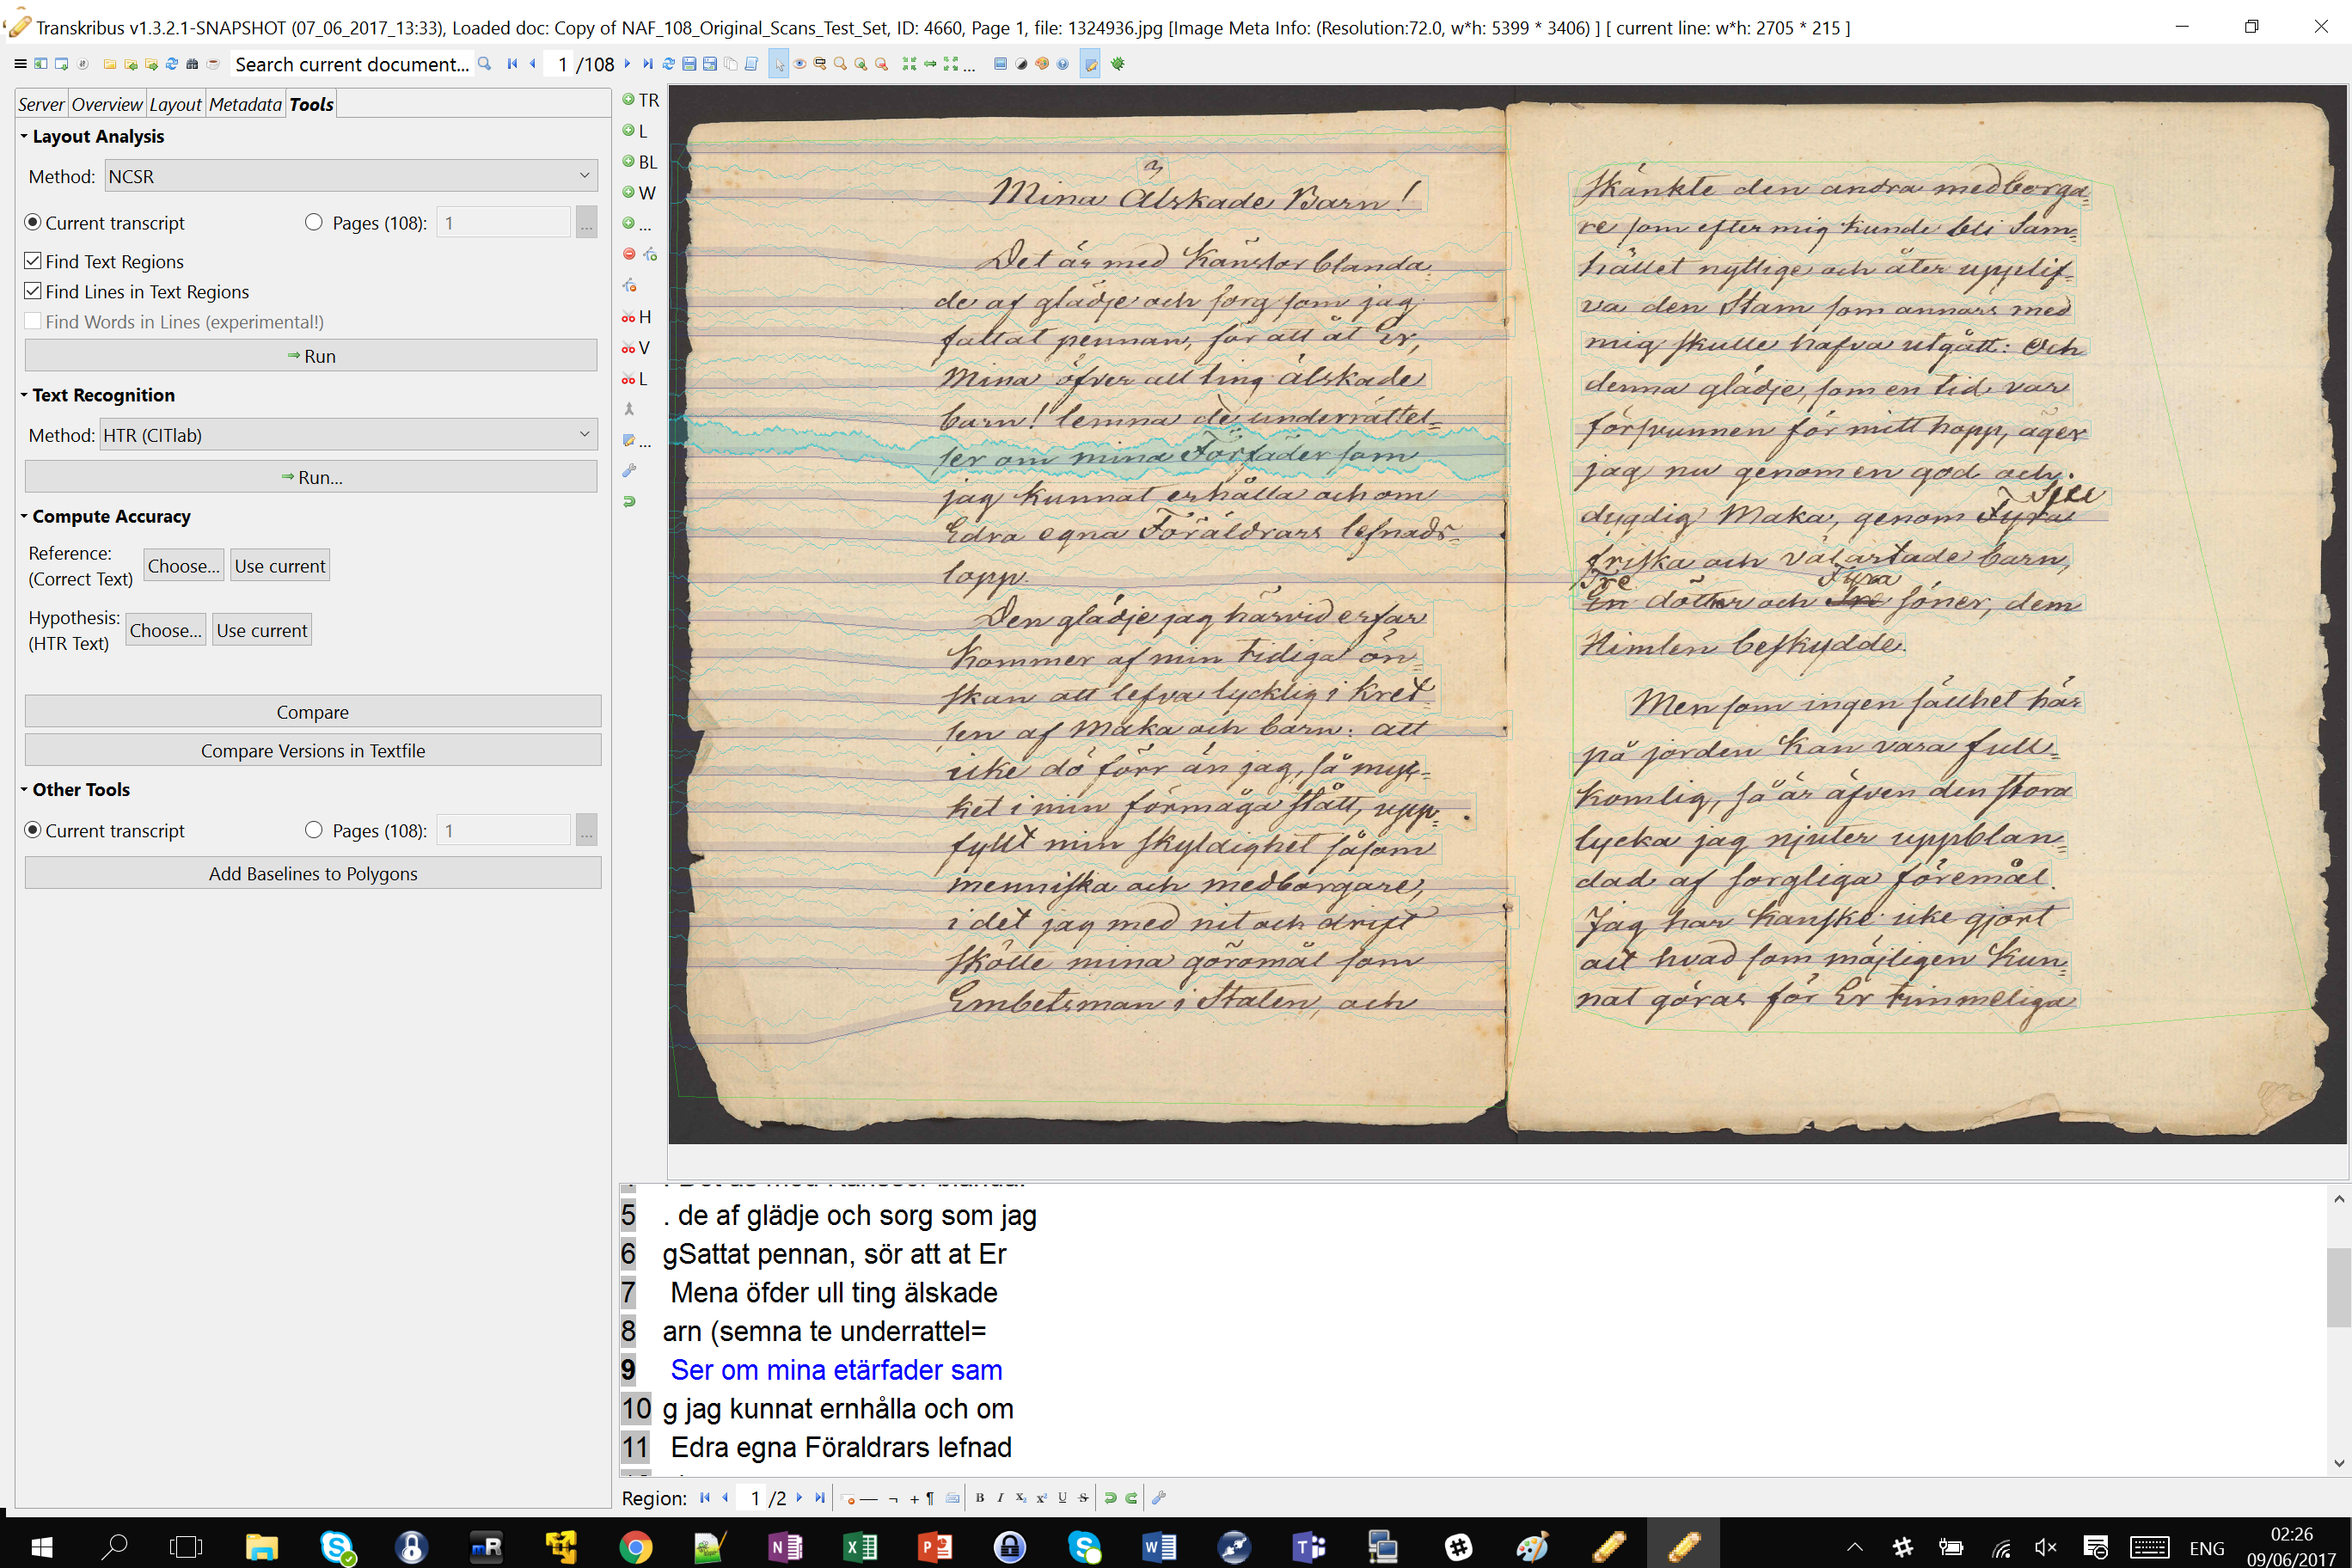 Transkribus v1.3.2.1-SNAPSHOT (07_06_2017_13:33), Loaded doc: Copy of NAF_108_Original_Scans_Test_Set, ID: 4660, Page 1, file: 1324936.jpg [Image Meta Info: (Resolution:72.0, w*h: 5399 * 3406) ] [ current line: w*h: 2705 * 215 ]
Search current document... 1 /108 ...
Server Overview Layout Metadata Tools
Layout Analysis
Method: NCSR
Current transcript Pages (108): 1 ...
Find Text Regions
Find Lines in Text Regions
Find Words in Lines (experimental!)
Run
Text Recognition
Method: HTR (CITlab)
Run...
Compute Accuracy
Reference:
(Correct Text) Choose... Use current
Hypothesis:
(HTR Text) Choose... Use current
Compare
Compare Versions in Textfile
Other Tools
Current transcript Pages (108): 1 ...
Add Baselines to Polygons
TR
L
BL
W
...
H
V
L
...
Mina Älskade Barn!
Det är med Känslor blanda
de af glädje och sorg som jag
fattat pennan, för att åt Er,
Mina öfver all ting älskade
barn! lemna de underrättel=
ser om mina Förfäder som
jag kunnat erhålla och om
Edra egna Föräldrars lefnads-
lopp.
Den glädje jag härvid erfar
Kommer af min tidiga ön=
skan att lefva lycklig i Kret=
sen af Maka och barn: att
icke dö förr än jag, så myc=
ket i min förmåga stått, upp=
fyllt min skyldighet såsom
menniska och medborgare,
i det jag med nit och drift
skötte mina göromål som
Embetsman i Staten, och
skänkte den andra medborga=
re som efter mig kunde bli Sam=
hället nyttige och åter upplif=
va den Stam som annars med
mig skulle hafva utgått: Och
denna glädje, som en tid var
försvunnen för mitt hopp, äger
jag nu genom en god och
dygdig Maka, genom Fyra
friska och välartade barn,
Tre Fyra
En döttrar och Tre söner, dem
Himlen beskydde.
Men som ingen sällhet här
på jorden Kan vara full=
komlig, så är äfven den stora
lycka jag njuter uppblan=
dad af sorgliga föremål.
Jag har Kanske icke gjort
allt hvad som möjligen Kun=
nat göras för Er timmeliga
5 . de af glädje och sorg som jag
6 gSattat pennan, sör att at Er
7 Mena öfder ull ting älskade
8 arn (semna te underrattel=
9 Ser om mina etärfader sam
10 g jag kunnat ernhålla och om
11 Edra egna Föraldrars lefnad
Region: 1 /2
ENG
02:26
09/06/2017